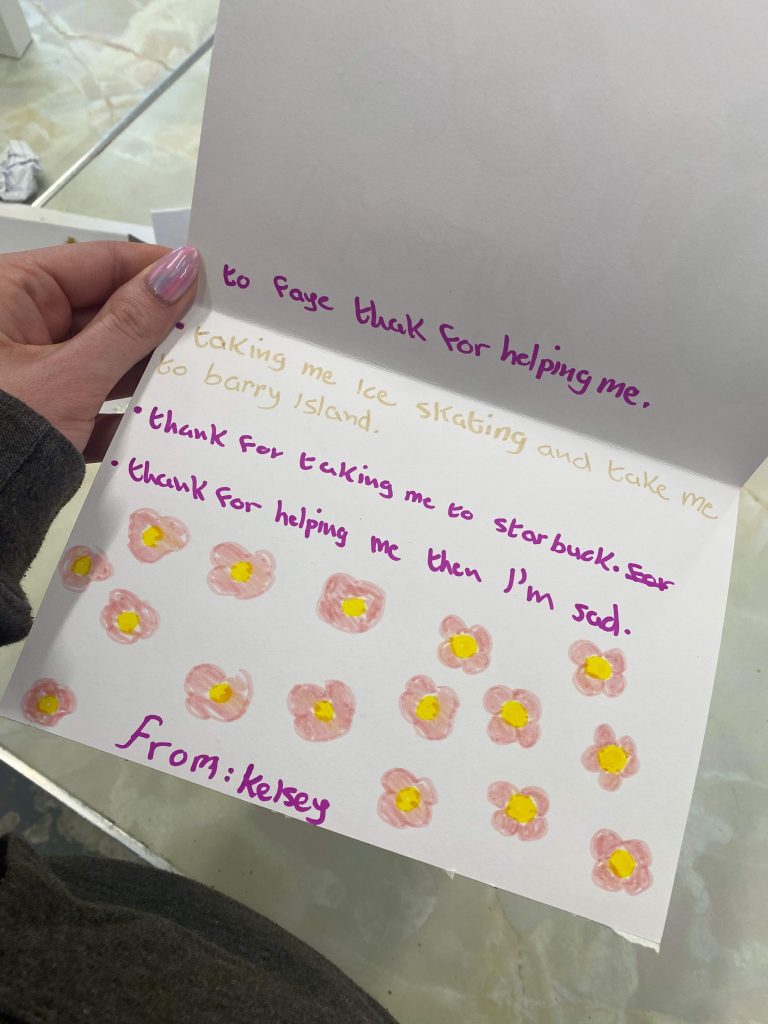 to faye thak for helping me.
• taking me Ice skating and take me
to barry Island.
• thank for taking me to starbuck. for
• thank for helping me then I'm sad.
from: kelsey